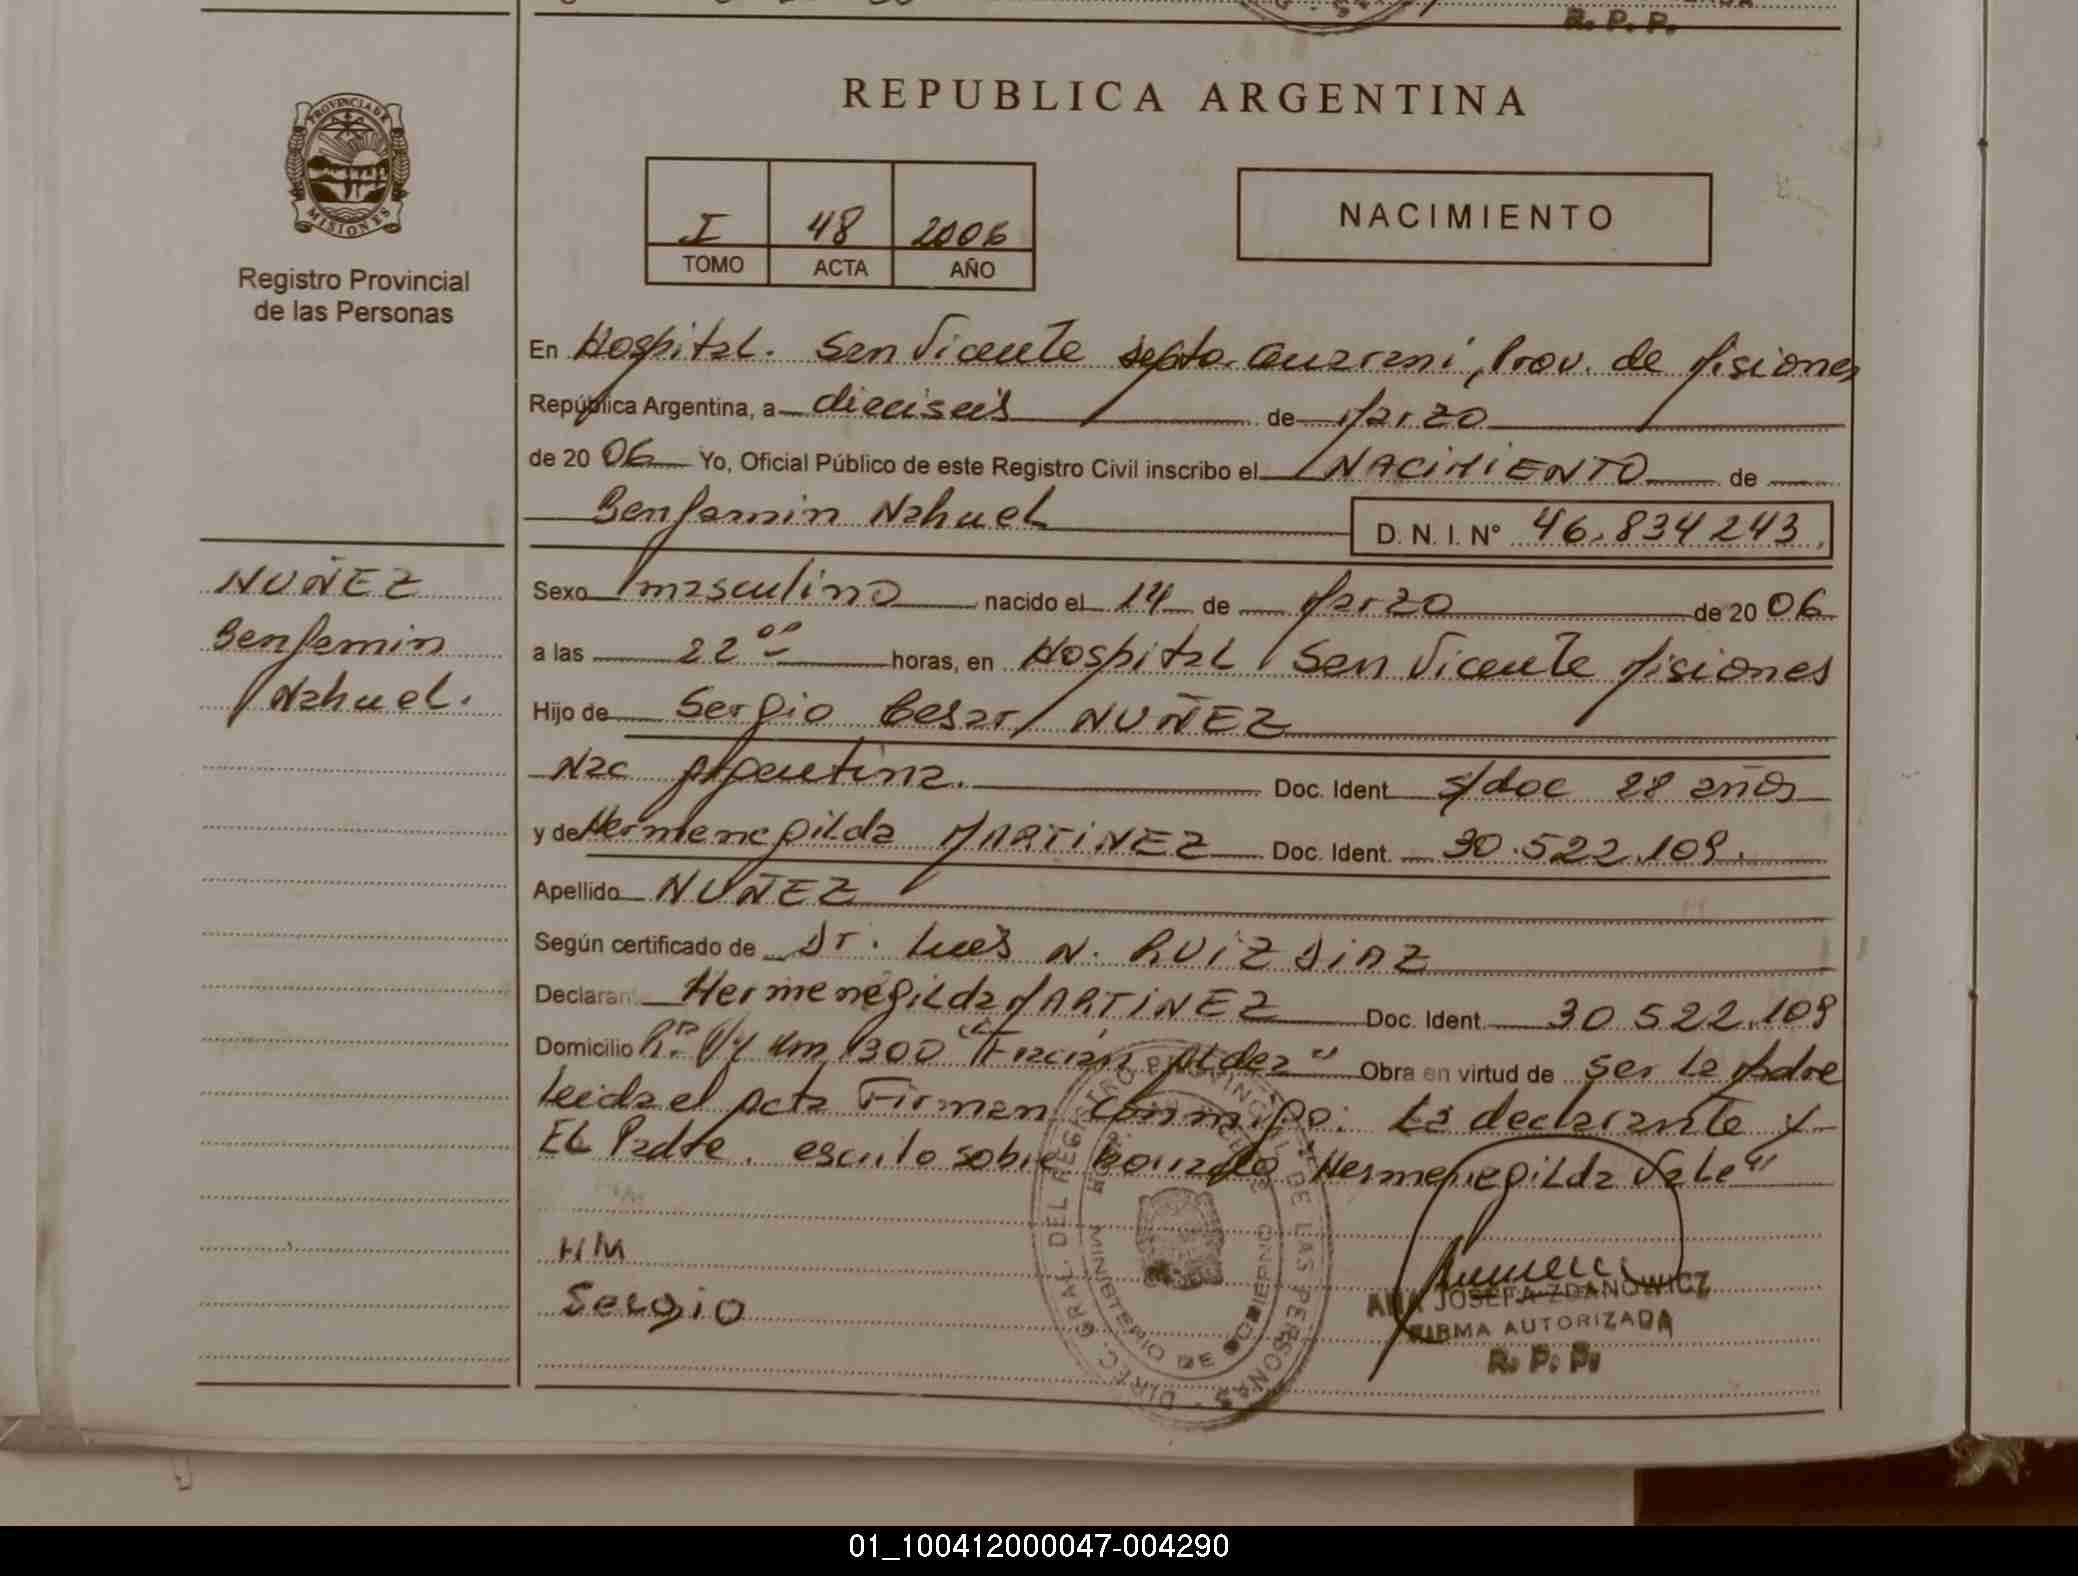 R. P. P.
PROVINCIA DE
MISIONES
Registro Provincial
de las Personas
REPUBLICA ARGENTINA
I 48 2006
TOMO ACTA AÑO
NACIMIENTO
En Hospital. San Vicente depto. Guarani, Prov. de Misiones
República Argentina, a dieciseis de Marzo
de 2006 Yo, Oficial Público de este Registro Civil inscribo el NACIMIENTO de
Benjamin Nahuel D. N. I. N° 46.834243.
NUÑEZ
Benjamin
Nahuel.
Sexo masculino nacido el 14 de Marzo de 2006
a las 22°° horas, en Hospital San Vicente Misiones
Hijo de Sergio Cesar NUÑEZ
Nac Argentina. Doc. Ident s/doc 28 años
y de Hermenegilda MARTINEZ Doc. Ident. 30.522.109.
Apellido NUÑEZ
Según certificado de Dr. Luis N. RUIZ DIAZ
Declaran Hermenegilda MARTINEZ Doc. Ident. 30 522.109
Domicilio Km 1300 Obra en virtud de ser la Madre
Leida el Acta Firman conmigo: La declarante y
EL Padre. escrito sobre borrado Hermenegilda Vale"
HM
Sergio
DIREC. GRAL. DEL REGISTRO PROVINCIAL DE LAS PERSONAS
MINISTERIO DE GOBIERNO
ANA JOSEFA ZDANOWICZ
FIRMA AUTORIZADA
R. P. P.
01_100412000047-004290